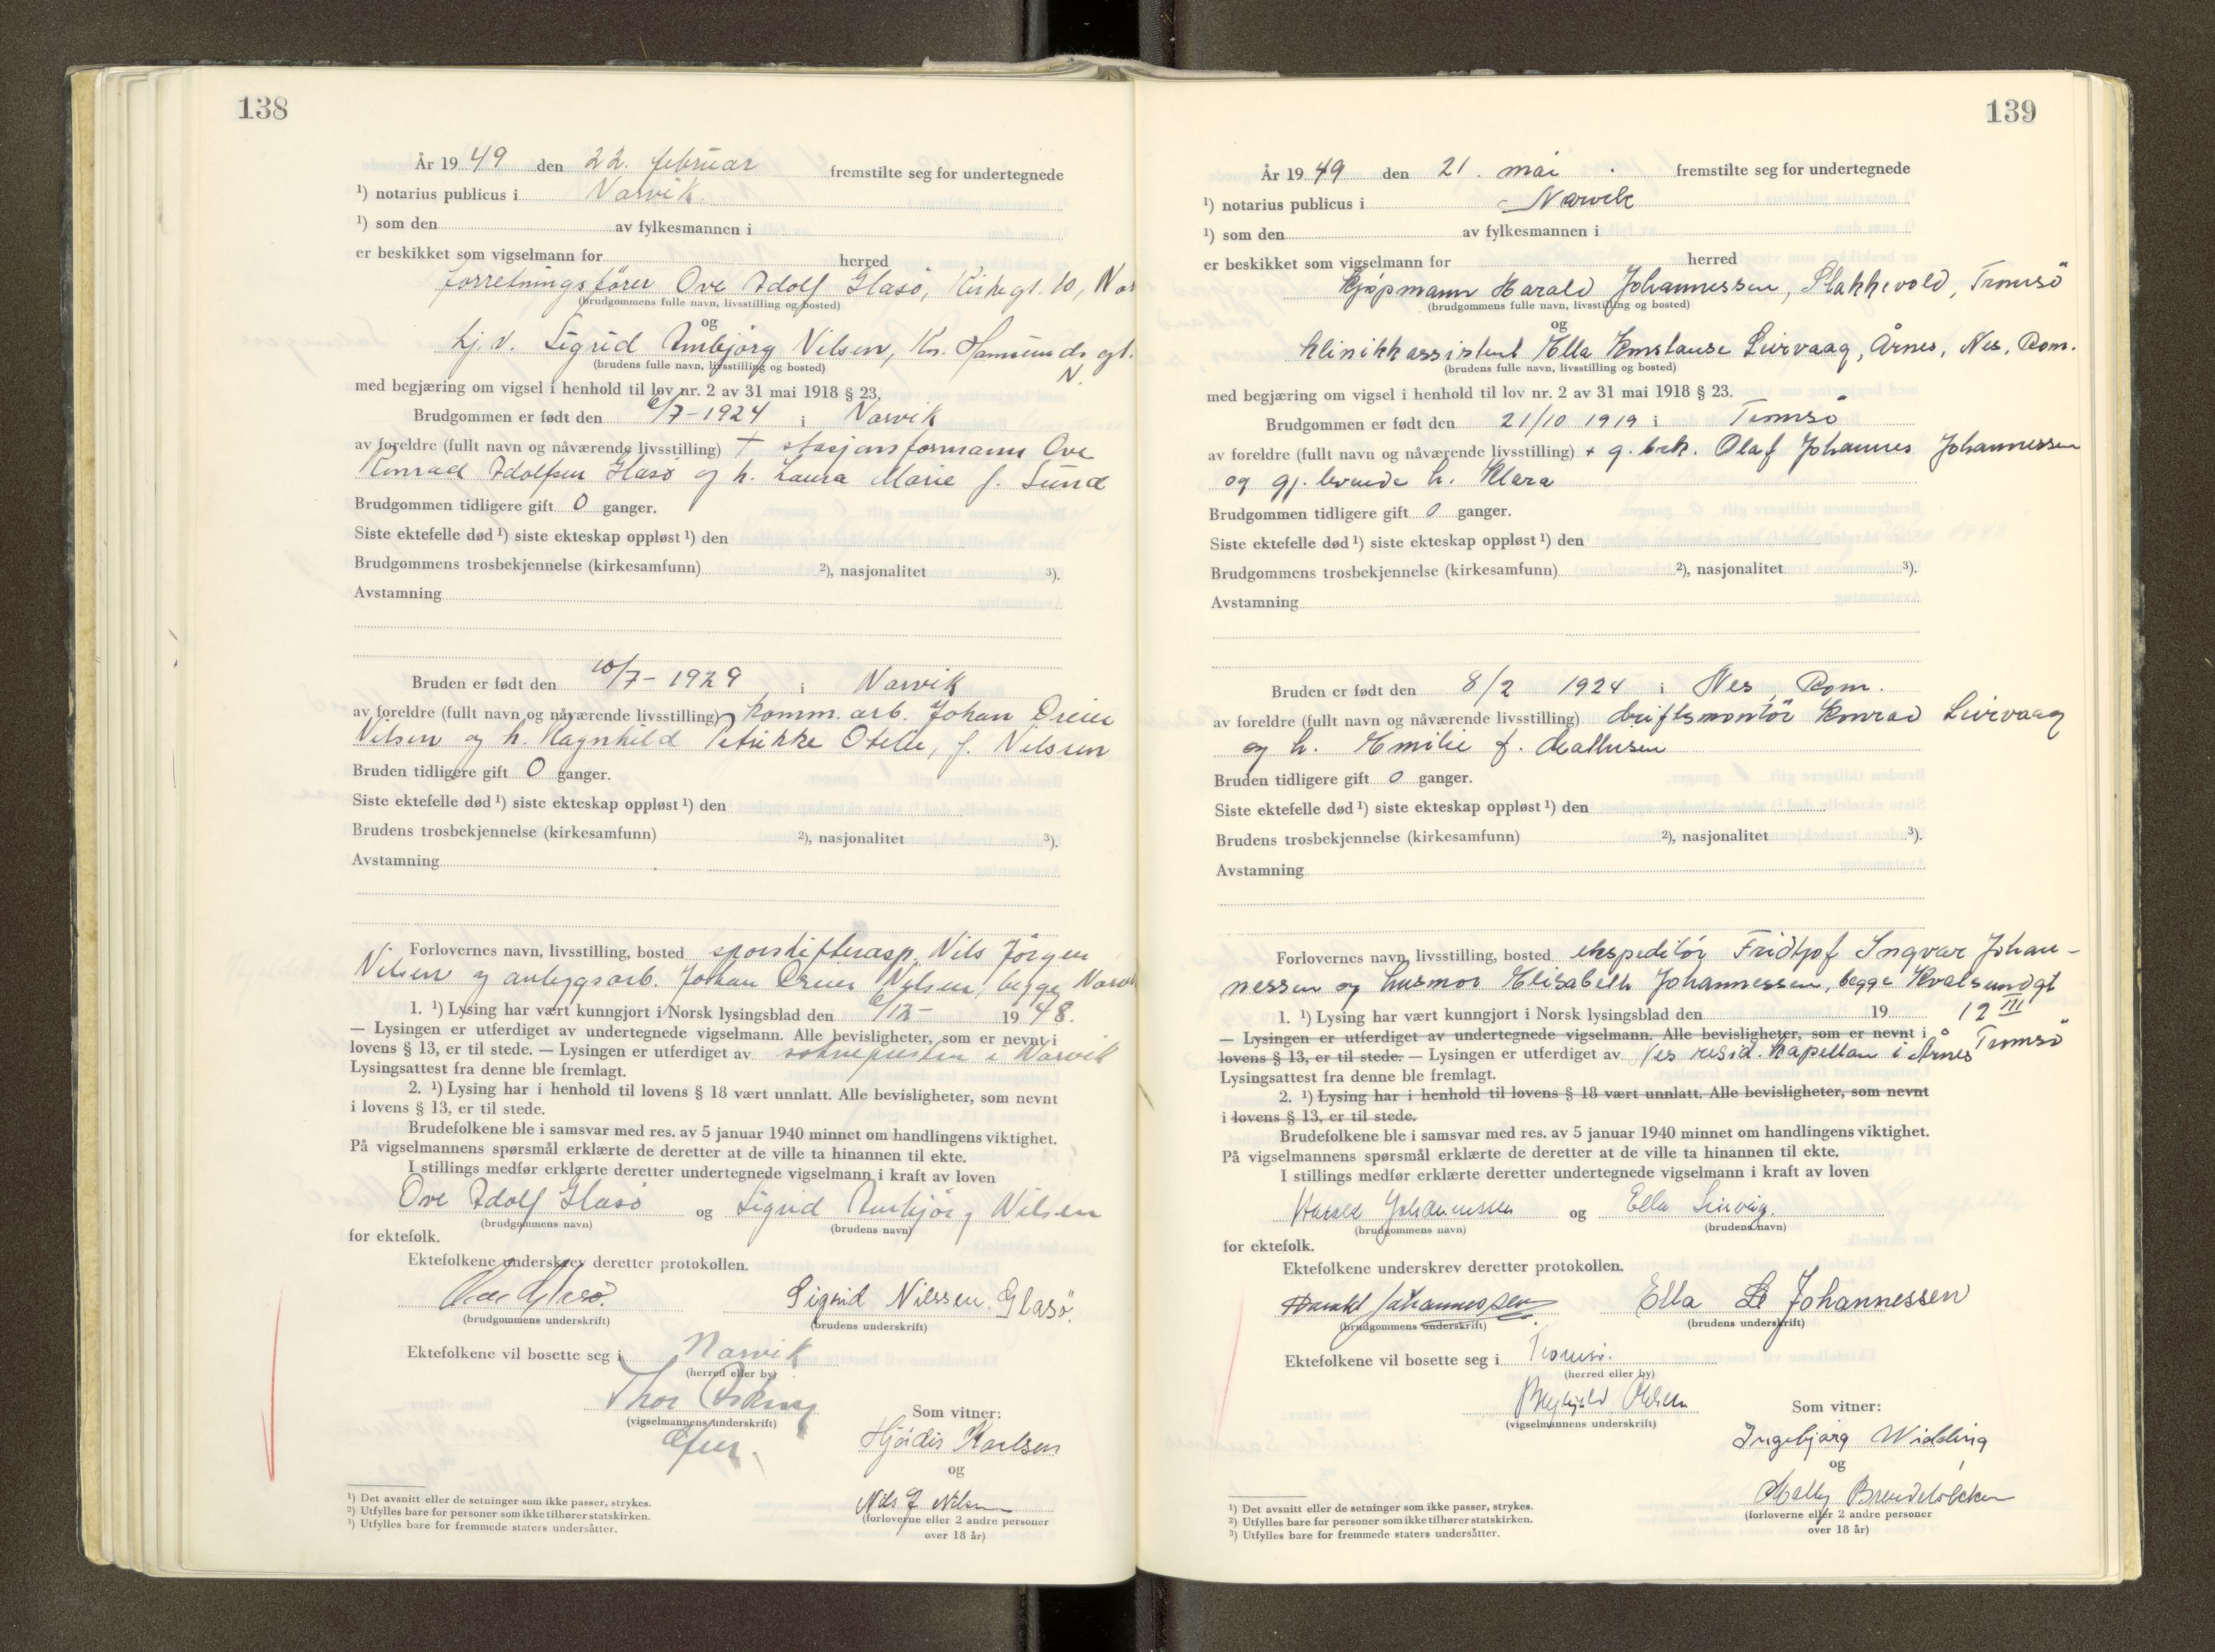 138
År 19 49 den 22. februar fremstilte seg for undertegnede
¹) notarius publicus i Narvik.
¹) som den av fylkesmannen i
er beskikket som vigselmann for herred
forretningsfører Ove Adolf Glasö, Kirkegt. 10, Nar
(brudgommens fulle navn, livsstilling og bosted)
og
hj. v. Sigrid Annbjörg Nilsen, Kn. Hamsunds gt.
N.
(brudens fulle navn, livsstilling og bosted)
med begjæring om vigsel i henhold til lov nr. 2 av 31 mai 1918 § 23.
Brudgommen er født den 6/7-1924 i Narvik
av foreldre (fullt navn og nåværende livsstilling) + stasjonsformann Ove
Konrad Adolfsen Glasö og h. Laura Marie f. Sund
Brudgommen tidligere gift 0 ganger.
Siste ektefelle død ¹) siste ekteskap oppløst ¹) den
Brudgommens trosbekjennelse (kirkesamfunn) ²), nasjonalitet ³).
Avstamning
Bruden er født den 10/7- 1929 i Narvik
av foreldre (fullt navn og nåværende livsstilling) komm. arb. Johan Dreier
Nilsen og h. Ragnhild Petrikke Otelie, f. Nilssen
Bruden tidligere gift 0 ganger.
Siste ektefelle død ¹) siste ekteskap oppløst ¹) den
Brudens trosbekjennelse (kirkesamfunn) ²), nasjonalitet ³).
Avstamning
Forlovernes navn, livsstilling, bosted sporskifterasp. Nils Jörgen
Nilsen og anleggsarb. Johan Dreier Nilsen, begge Narvik
1. ¹) Lysing har vært kunngjort i Norsk lysingsblad den 6/12- 19 48.
— Lysingen er utferdiget av undertegnede vigselmann. Alle bevisligheter, som er nevnt i
lovens § 13, er til stede. — Lysingen er utferdiget av soknepresten i Narvik
Lysingsattest fra denne ble fremlagt.
2. ¹) Lysing har i henhold til lovens § 18 vært unnlatt. Alle bevisligheter, som nevnt
i lovens § 13, er til stede.
Brudefolkene ble i samsvar med res. av 5 januar 1940 minnet om handlingens viktighet.
På vigselmannens spørsmål erklærte de deretter at de ville ta hinannen til ekte.
I stillings medfør erklærte deretter undertegnede vigselmann i kraft av loven
Ove Adolf Glasö og Sigrid Annbjörg Nilsen
(brudgommens navn) (brudens navn)
for ektefolk.
Ektefolkene underskrev deretter protokollen.
Ove Glasö. Sigrid Nilssen. Glasö.
(brudgommens underskrift) (brudens underskrift)
Ektefolkene vil bosette seg i Narvik
(herred eller by)
Thor
(vigselmannens underskrift)
Som vitner:
Hjördis Karlsen
og
Nils J Nilsen
(forloverne eller 2 andre personer
over 18 år)
¹) Det avsnitt eller de setninger som ikke passer, strykes.
²) Utfylles bare for personer som ikke tilhører statskirken.
³) Utfylles bare for fremmede staters undersåtter.
139
År 19 49 den 21. mai fremstilte seg for undertegnede
¹) notarius publicus i Narvik
¹) som den av fylkesmannen i
er beskikket som vigselmann for herred
Kjøpmann Harald Johannessen, Slakkevold, Tromsö
(brudgommens fulle navn, livsstilling og bosted)
og
klinikkassistent Ella Konstanse Leirvaag, Årnes, Nes, Rom.
(brudens fulle navn, livsstilling og bosted)
med begjæring om vigsel i henhold til lov nr. 2 av 31 mai 1918 § 23.
Brudgommen er født den 21/10 1919 i Tromsö
av foreldre (fullt navn og nåværende livsstilling) + g. brk. Olaf Johannes Johannessen
og gj. levende h. Klara
Brudgommen tidligere gift 0 ganger.
Siste ektefelle død ¹) siste ekteskap oppløst ¹) den
Brudgommens trosbekjennelse (kirkesamfunn) ²), nasjonalitet ³).
Avstamning
Bruden er født den 8/2 1924 i Nes, Rom.
av foreldre (fullt navn og nåværende livsstilling) driftsmontör Konrad Leirvaag
og h. Emilie f. Mathisen
Bruden tidligere gift 0 ganger.
Siste ektefelle død ¹) siste ekteskap oppløst ¹) den
Brudens trosbekjennelse (kirkesamfunn) ²), nasjonalitet ³).
Avstamning
Forlovernes navn, livsstilling, bosted ekspeditör Fridtjof Ingvar Johan-
nessen og husmor Elisabeth Johannessen, begge Kvalsundgt
12 III
Tromsö
1. ¹) Lysing har vært kunngjort i Norsk lysingsblad den 19
— Lysingen er utferdiget av undertegnede vigselmann. Alle bevisligheter, som er nevnt i
lovens § 13, er til stede. — Lysingen er utferdiget av res resid. kapellan i Årnes
Lysingsattest fra denne ble fremlagt.
2. ¹) Lysing har i henhold til lovens § 18 vært unnlatt. Alle bevisligheter, som nevnt
i lovens § 13, er til stede.
Brudefolkene ble i samsvar med res. av 5 januar 1940 minnet om handlingens viktighet.
På vigselmannens spørsmål erklærte de deretter at de ville ta hinannen til ekte.
I stillings medfør erklærte deretter undertegnede vigselmann i kraft av loven
Harald Johannessen og Ella Leirvåg.
(brudgommens navn) (brudens navn)
for ektefolk.
Ektefolkene underskrev deretter protokollen.
Harald Johannessen Ella Le Johannessen
(brudgommens underskrift) (brudens underskrift)
Ektefolkene vil bosette seg i Tromsö.
(herred eller by)
(vigselmannens underskrift)
Som vitner:
Ingebjørg Widding
og
Molly
(forloverne eller 2 andre personer
over 18 år)
¹) Det avsnitt eller de setninger som ikke passer, strykes.
²) Utfylles bare for personer som ikke tilhører statskirken.
³) Utfylles bare for fremmede staters undersåtter.